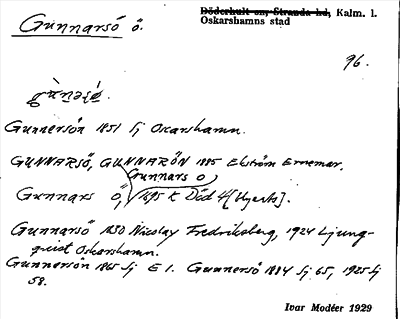 Gunnarsö ö.
Döderhult sn, Stranda hd, Kalm. l.
Oskarshamns stad
96.
Gunnersön 1851 Sj Oscarshamn.
GUNNARSÖ, GUNNARÖN 1885 Ekström Ernemar.
Gunnars ö
Gunnars ö, 1695 k Död 4
Gunnarsö 1850 Nicolay Fredriksberg, 1924 Ljung-
quist Oskarshamn.
Gunnersön 1865 Sj E 1. Gunnersö 1884 Sj 65, 1925 Sj
58.
Ivar Modéer 1929